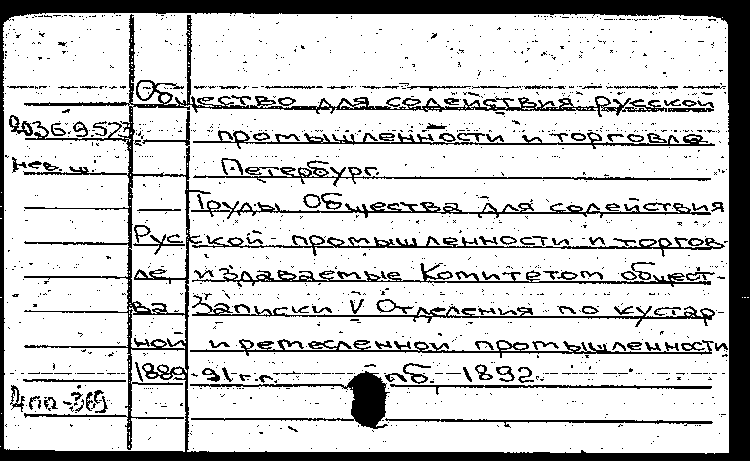 Общество для содействия русской
промышленности и торговле
Петербург.
Труды Общества для содействия
Русской промышленности и торгов-
ле, издаваемые Комитетом общест-
ва. Записки V Отделения по кустар-
ной и ремесленной промышленности
1889-91 г.г. пб. 1892.